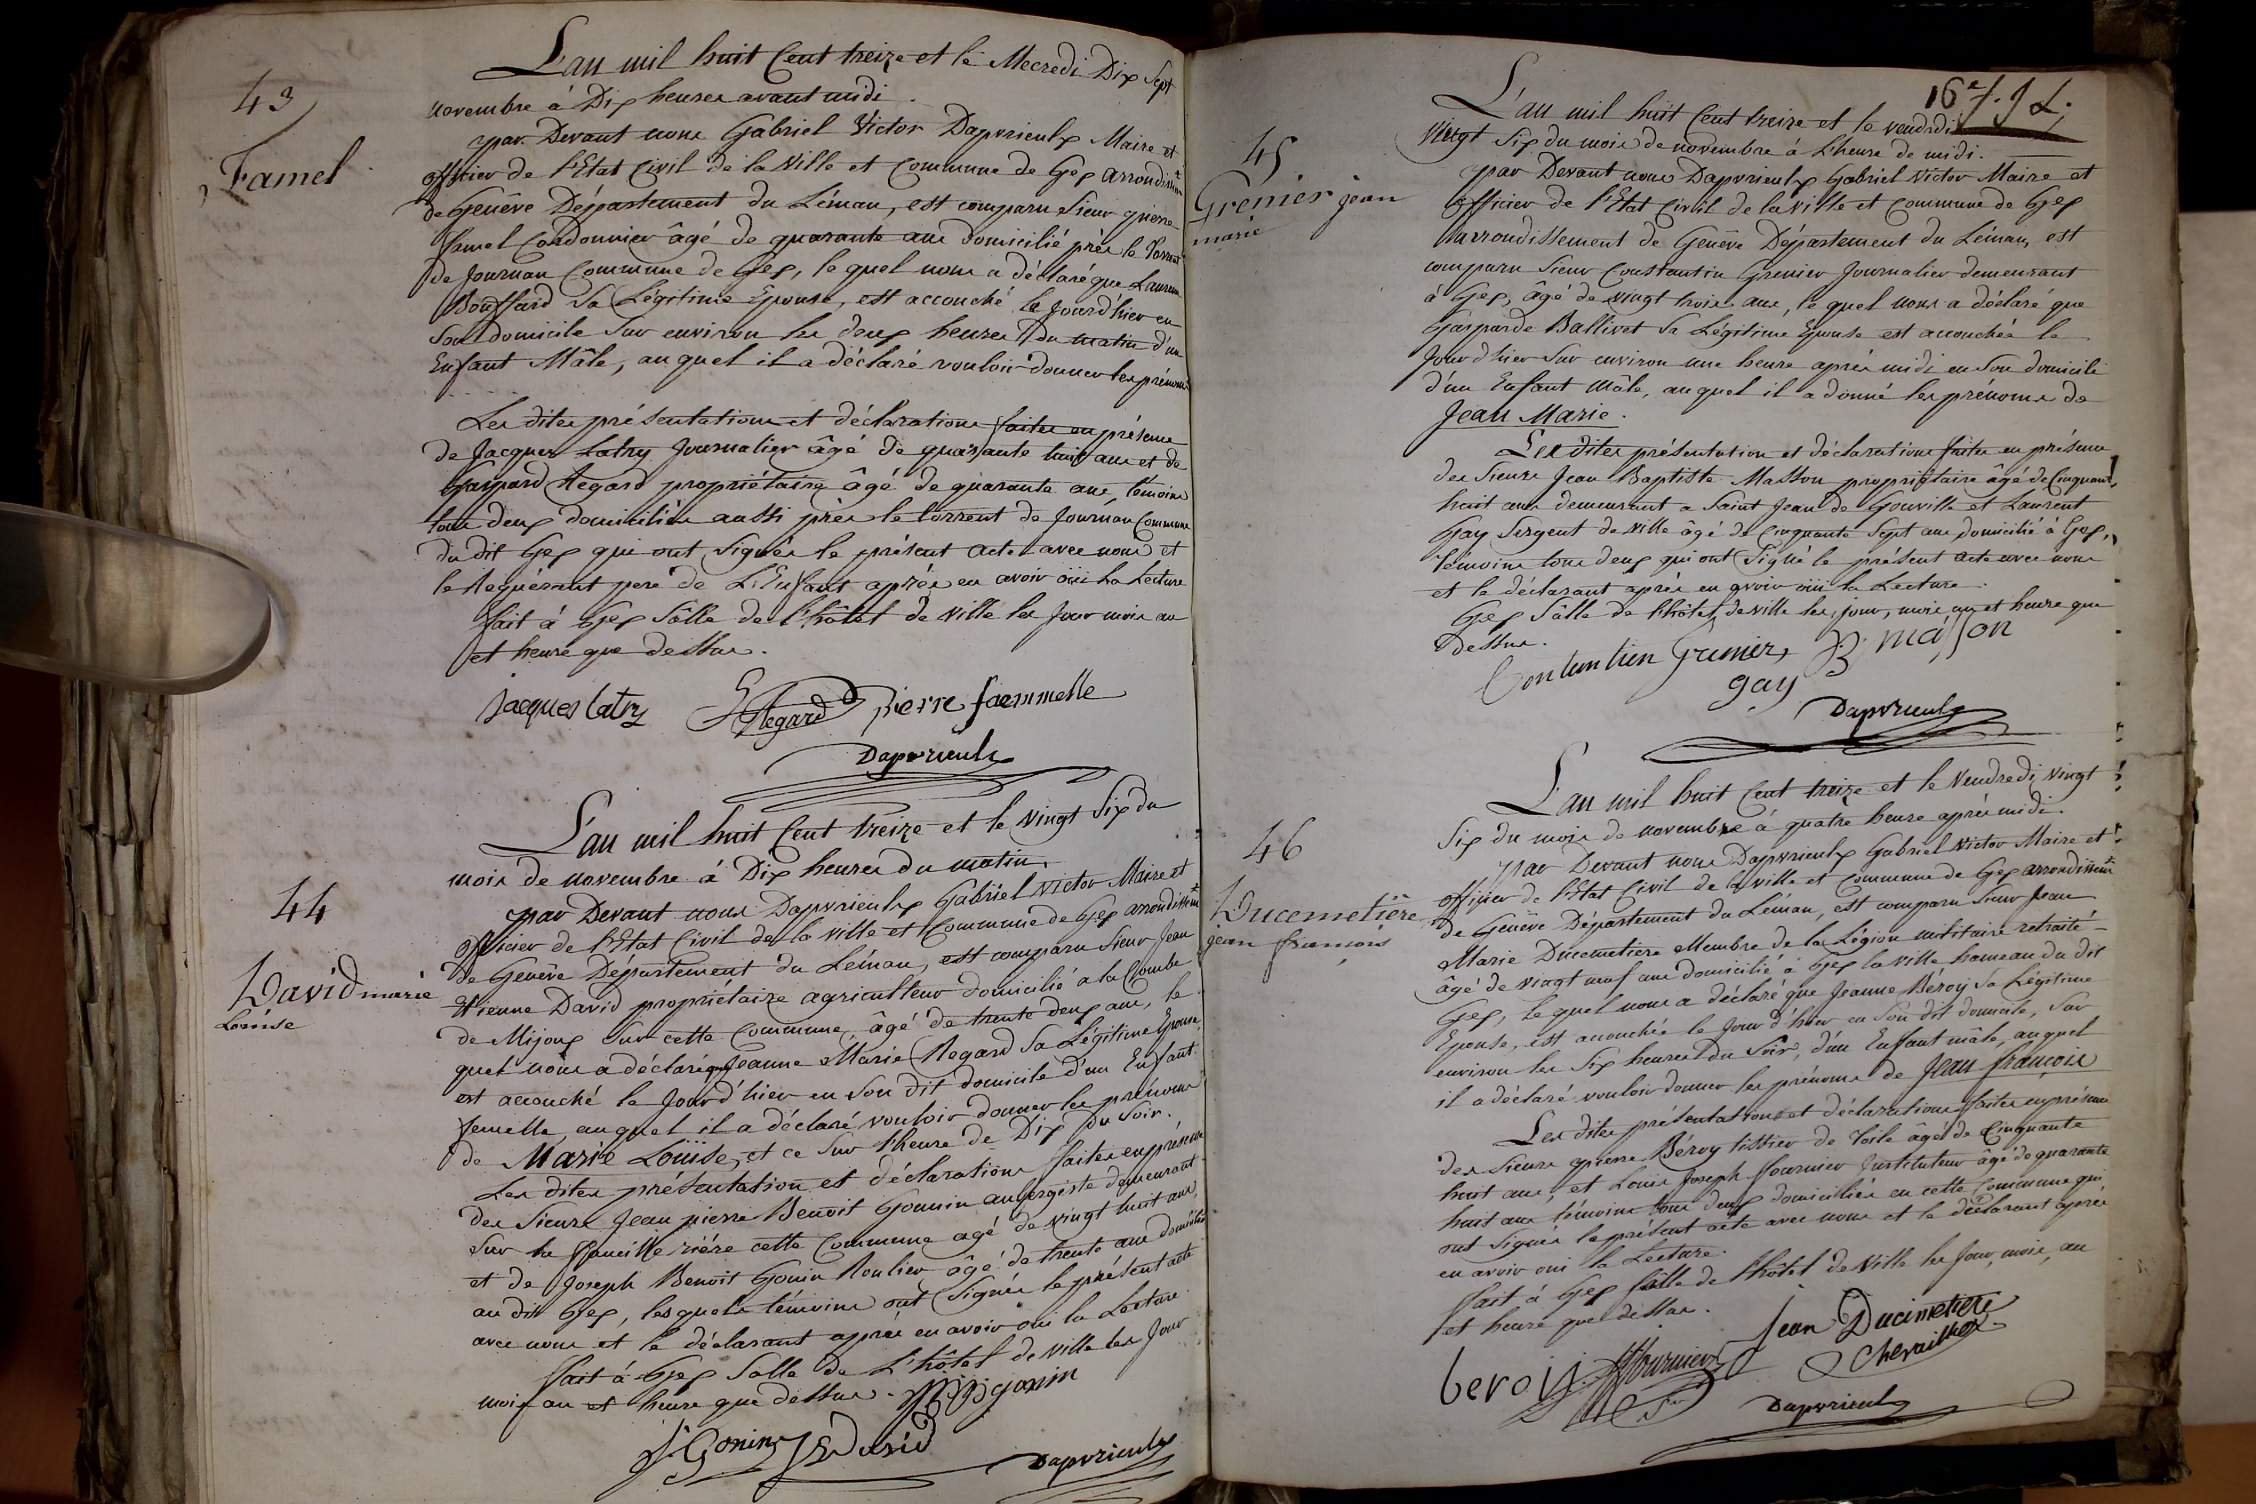 43
Famel
L'an mil huit Cent treize et le Mecredi Dix Sept
novembre à Dix heures avant midi.
par Devant nous Gabriel Victor Dapvrieulx Maire et
officier de l'Etat Civil de la Ville et Commune de Gex arrondissemt
de Genêve Département du Léman, est comparu Sieur pierre
famel Cordonnier âgé de quarante ans domicilié près le Torrent
de Journan Commune de Gex, le quel nous a déclaré que
Bouffard Sa Légitime Epouse, est accouché le Jourd'hier en
Son domicile Sur environ les deux heures du matin d'un
Enfant Mâle, au quel il a déclaré vouloir donner les prénoms
Les dites présentations et déclarations faites en présence
de Jacques Latry Journalier âgé de quarante huit ans et de
Gaspard Regard propriétaire âgé de quarante ans, témoins
tous deux domiciliés aussi près le torrent de Journan Commune
du dit Gex qui ont Signés le présent acte avec nous et
le Requérant pere de L'Enfant après en avoir oüi la Lecture
fait à Gex Sâlle de l'hôtel de Ville les Jour mois an
et heure que dessus.
jacques latry Regard pierre faemmelle
Dapvrieulx
44
David marie
Louise
L'an mil huit Cent treize et le vingt Six du
mois de novembre à Dix heures du matin.
par Devant nous Dapvrieulx Gabriel Victor Maire et
officier de l'Etat Civil de la Ville et Commune de Gex arrondissemt
de Genêve Département du Léman, est comparu Sieur Jean
Etienne David propriétaire agriculteur domicilié a la Combe
de Mijoux Sur cette Commune, âgé de trente deux ans, le
quel nous a déclaré que Jeanne Marie Regard Sa Légitime Epouse,
est accouché le Jourd'hier en Son dit domicile d'un Enfant
femelle, au quel il a déclaré vouloir donner les prénoms
de Marie Loüise, et ce Sur l'heure de Dix du Soir.
Les dites présentation et déclarations faites en présence
des Sieurs Jean pierre Benoit Gounin aubergiste demeurant
Sur la faucille rière cette Commune agé de vingt huit ans,
et de Joseph Benoit Gonin Roulier âgé de trente ans domicilié
au dit Gex, lesquels témoins ont Signés le présent acte
avec nous et le déclarant après en avoir oüi la Lecture.
fait à Gex Salle de L'hôtel de Ville les Jour
mois an et heure que dessus. gonin
Gonin David
Dapvrieulx
16e f. J L.
45
Grenier jean
marie
L'an mil huit Cent treize et le vendredi
Vingt Six du mois de novembre à L'heure de midi.
par Devant nous Dapvrieulx Gabriel Victor Maire et
officier de l'Etat Civil de la Ville et Commune de Gex
arrondissement de Genêve Département du Léman, est
comparu Sieur Constantin Grenier Journalier demeurant
à Gex, âgé de vingt trois ans, le quel nous a déclaré que
Gasparde Ballivet Sa Légitime Epouse est accouchée le
Jourd'hier Sur environ une heure après midi en Son domicile
d'un Enfant Mâle, au quel il a donné les prénoms de
Jean Marie.
Les dites présentation et déclarations faites en présence
des Sieurs Jean Baptiste Masson propriétaire âgé de Cinquante
huit ans demeurant a Saint Jean de Gouville et Laurent
Gay Sergent de Ville âgé de Cinquante Sept ans domicilié à Gex,
témoins tous deux qui ont Signé le présent acte avec nous
et le déclarant après en avoir oüi la Lecture.
Gex Sâlle de l'hôtel de Ville les, jour, mois an et heure que
dessus.
Grenier B masson
gay
Dapvrieulx
46
Ducemetière
jean francois
L'an mil huit Cent treize et le Vendredi Vingt
Six du mois de novembre à quatre heure après midi.
par Devant nous Dapvrieulx Gabriel Victor Maire et
officier de l'Etat Civil de la Ville et Commune de Gex arrondissemt
de Genêve Département du Léman, est comparu Sieur Jean
Marie Ducemetiere Membre de la Légion militaire retraité
âgé de vingt neuf ans domicilié à Gex la Ville hameau du dit
Gex, le quel nous a déclaré que Jeanne Béroy Sa Légitime
Epouse, est accouchée le Jour d'hier en Son dit domicile, Sur
environ les Six heures du Soir, d'un Enfant mâle, au quel
il a déclaré vouloir donner les prénoms de Jean françois
Les dites présentations et déclarations faites en présence
des Sieurs pierre Béroy tissier de Toile âgé de Cinquante
huit ans, et Louis Joseph fournier Instituteur âgé de quarante
huit ans témoins tous deux domiciliés en cette Commune qui
ont Signés le présent acte avec nous et le déclarant après
en avoir oui la Lecture.
fait à Gex Sâlle de l'hôtel de Ville les Jour, mois, an
et heure que dessus.
Jean Ducimetiere
beroy fournier chevailler
Dapvrieulx